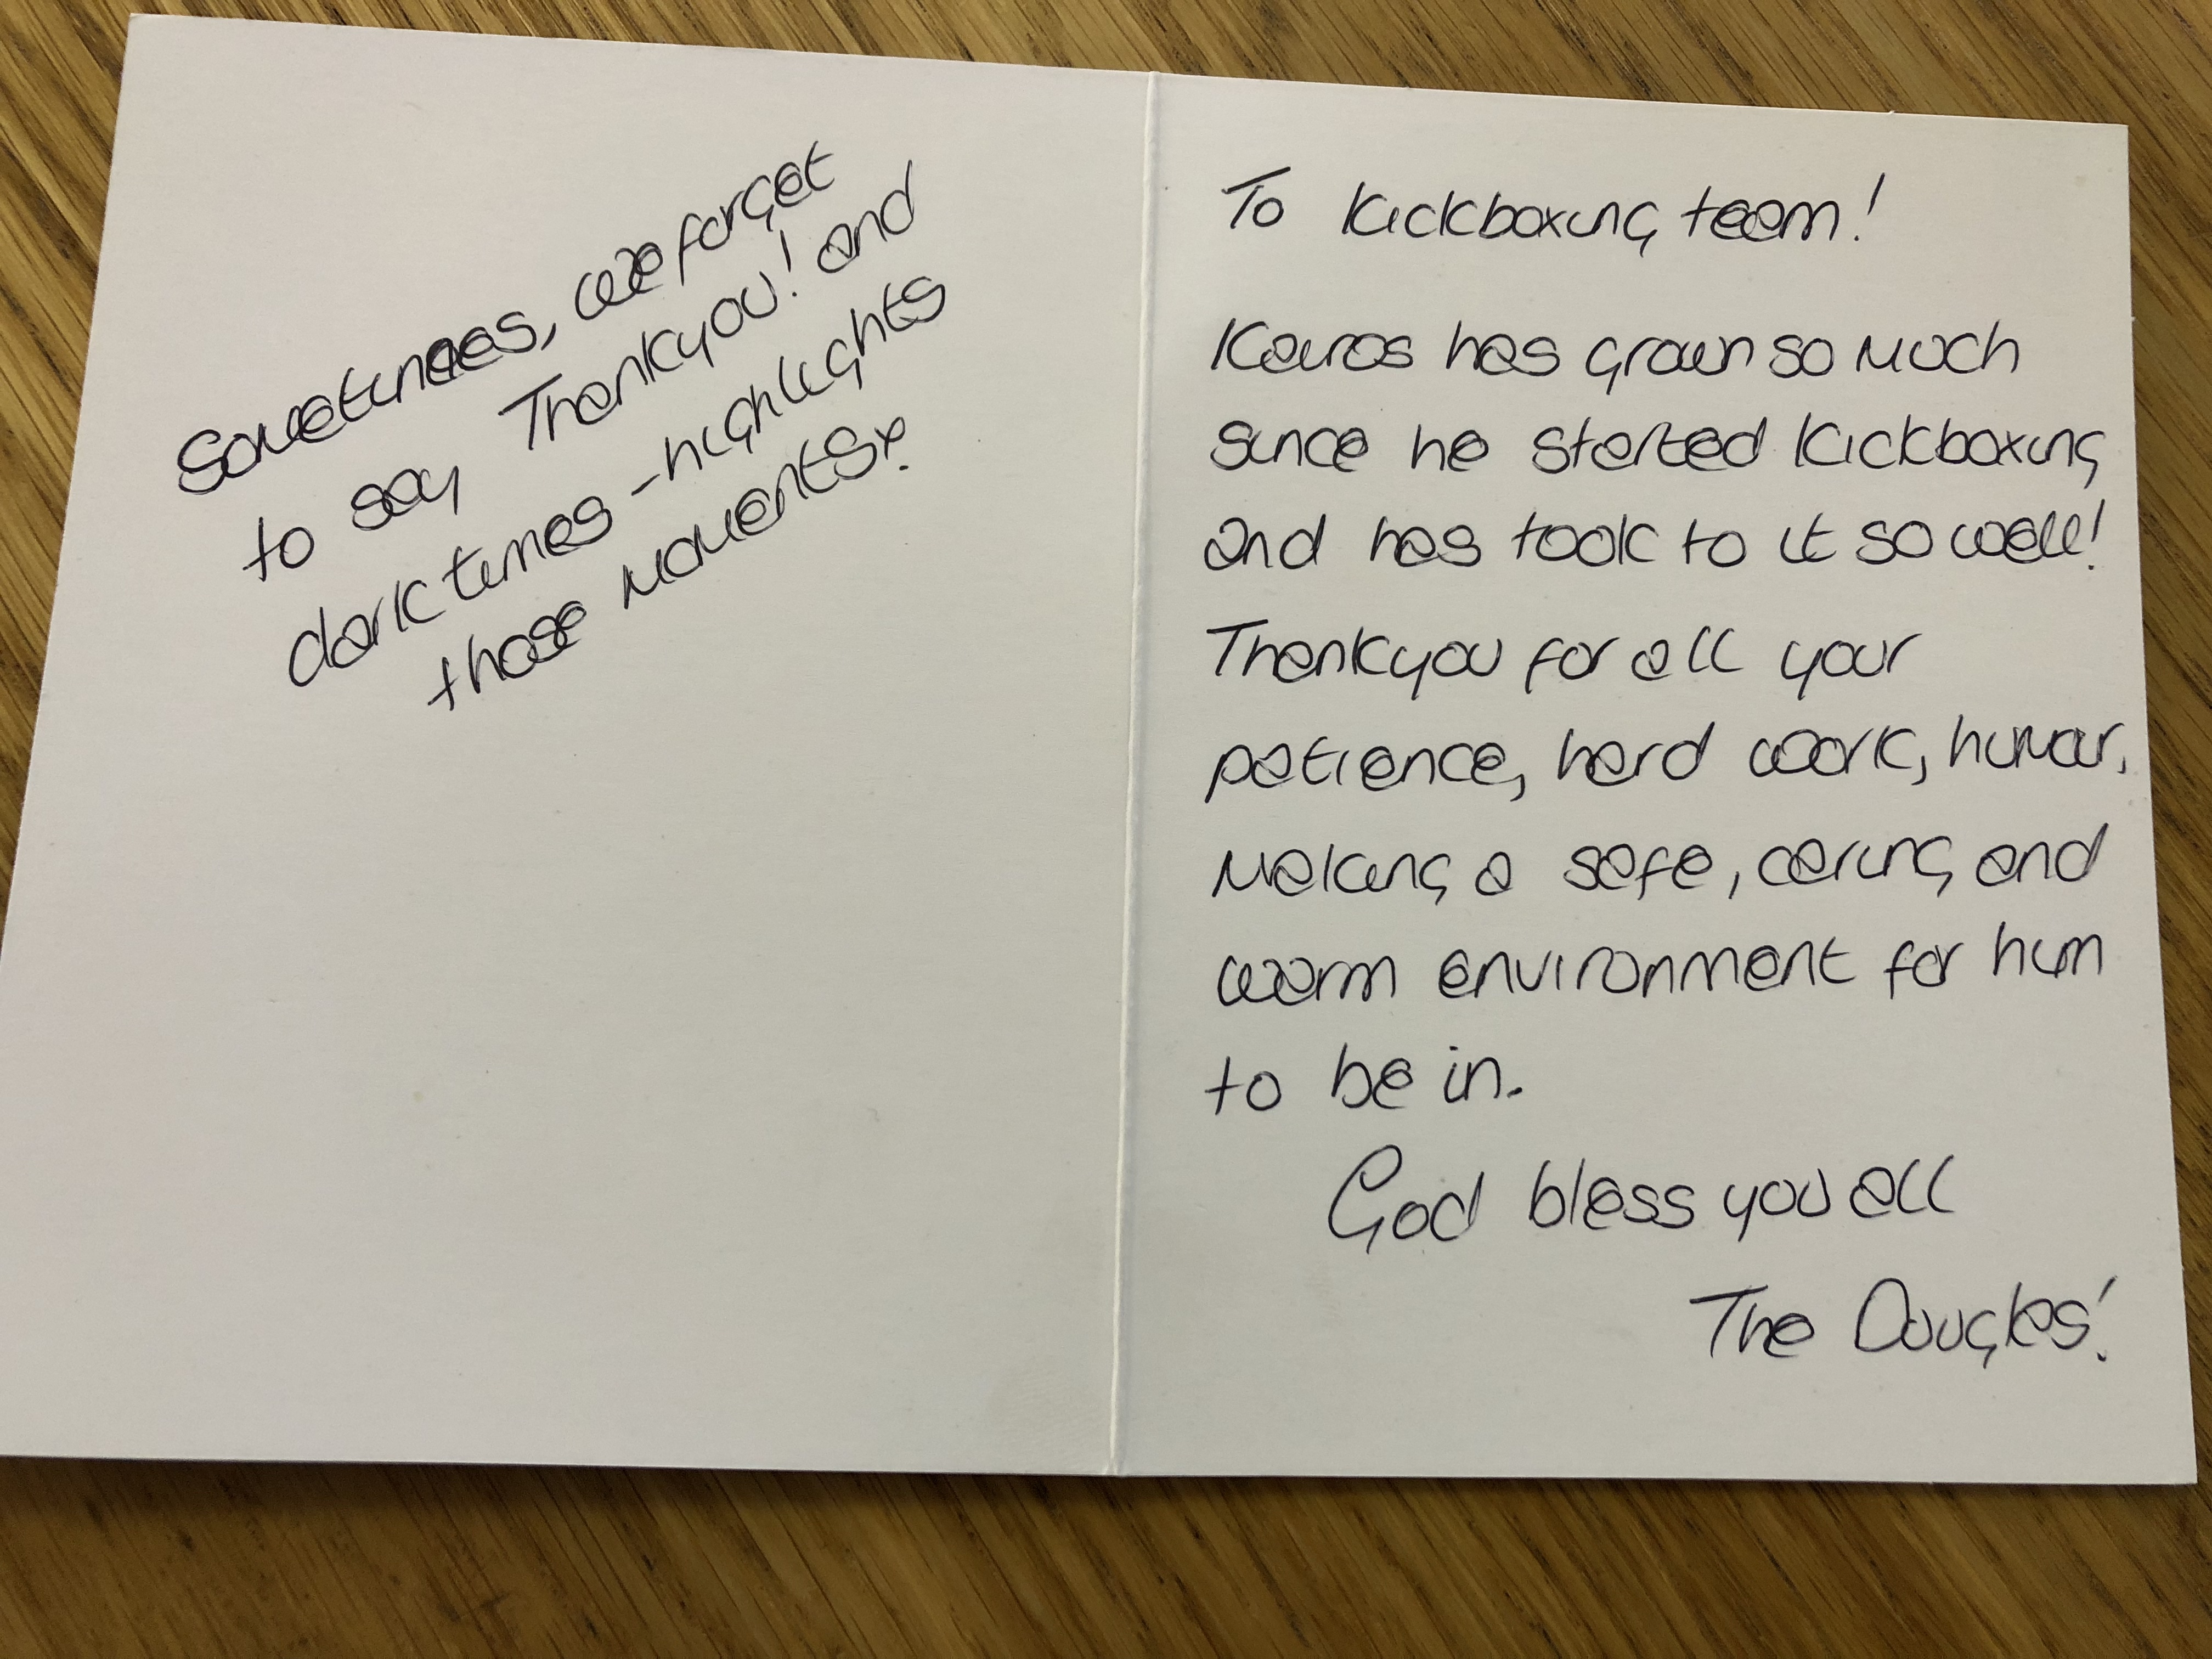 Sometimes, we forget
to say Thankyou! and
dark times - highlights
those moments x.
To Kickboxing team!
Kairos has grown so much
since he started Kickboxing
and has took to it so well!
Thankyou for all your
patience, hard work, humour,
making a safe, caring and
warm environment for him
to be in.
God bless you all
The Douglas'!